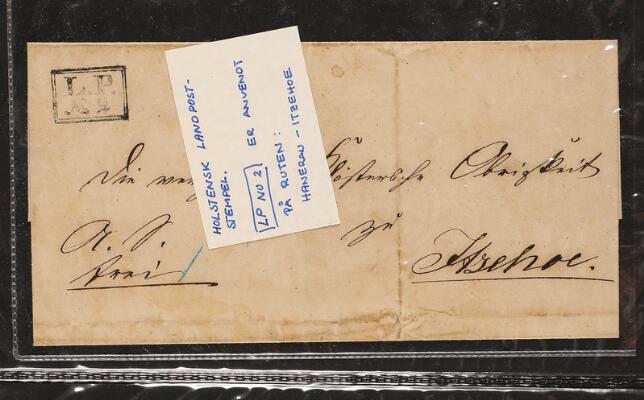 L.P.
№ 2
HOLSTENSK LANDPOST-
STEMPEL.
LP NO 2 ER ANVENDT
PÅ RUTEN:
HANERAU - ITZEHOE
Die Klösterliche Obrigkeit
A. S. zu
frei Itzehoe.